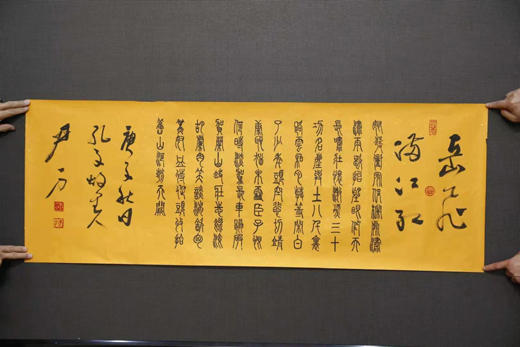 岳飞
满江红
怒髮衝冠憑欄處瀟
瀟雨歇抬望眼仰天
長嘯壯懷激烈三十
功名塵與土八千里
路雲和月莫等閑白
了少年頭空悲切靖
康恥猶未雪臣子恨
何時滅駕長車踏破
賀蘭山缺壯志飢餐
胡虜肉笑談渴飲匈
奴血待從頭收拾
舊山河朝天闕
庚子秋日
孔子故里人